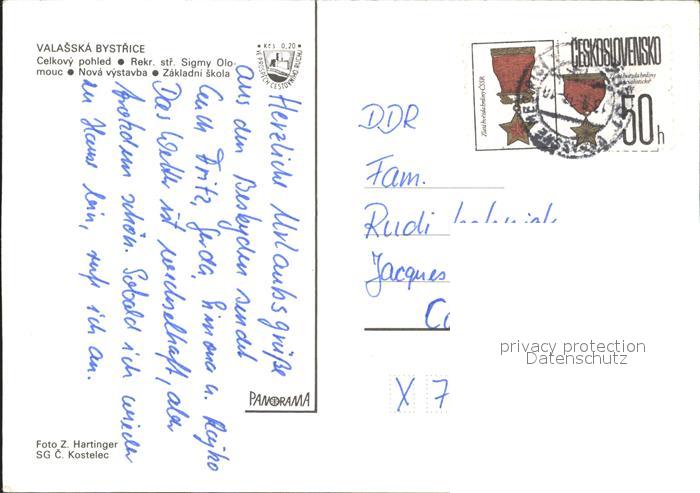 VALAŠSKÁ BYSTŘICE
Celkový pohled ● Rekr. stř. Sigmy Olo-
mouc ● Nová výstavba ● Základní škola
Kčs 0,20
Herzliche Urlaubsgrüße
aus den Beskyden sendet
Euch Fritz, Gerda, Simona u. Rajko
Das Wetter ist wechselhaft, aber
trotzdem schön. Sobald ich wieder
zu Hause bin, ruf ich an.
PANORAMA
Foto Z. Hartinger
SG Č. Kostelec
ČESKOSLOVENSKO
Zlatá hvězda hrdiny ČSSR
50 h
DDR
Fam.
Rudi
Jacques
X 7
privacy protection
Datenschutz